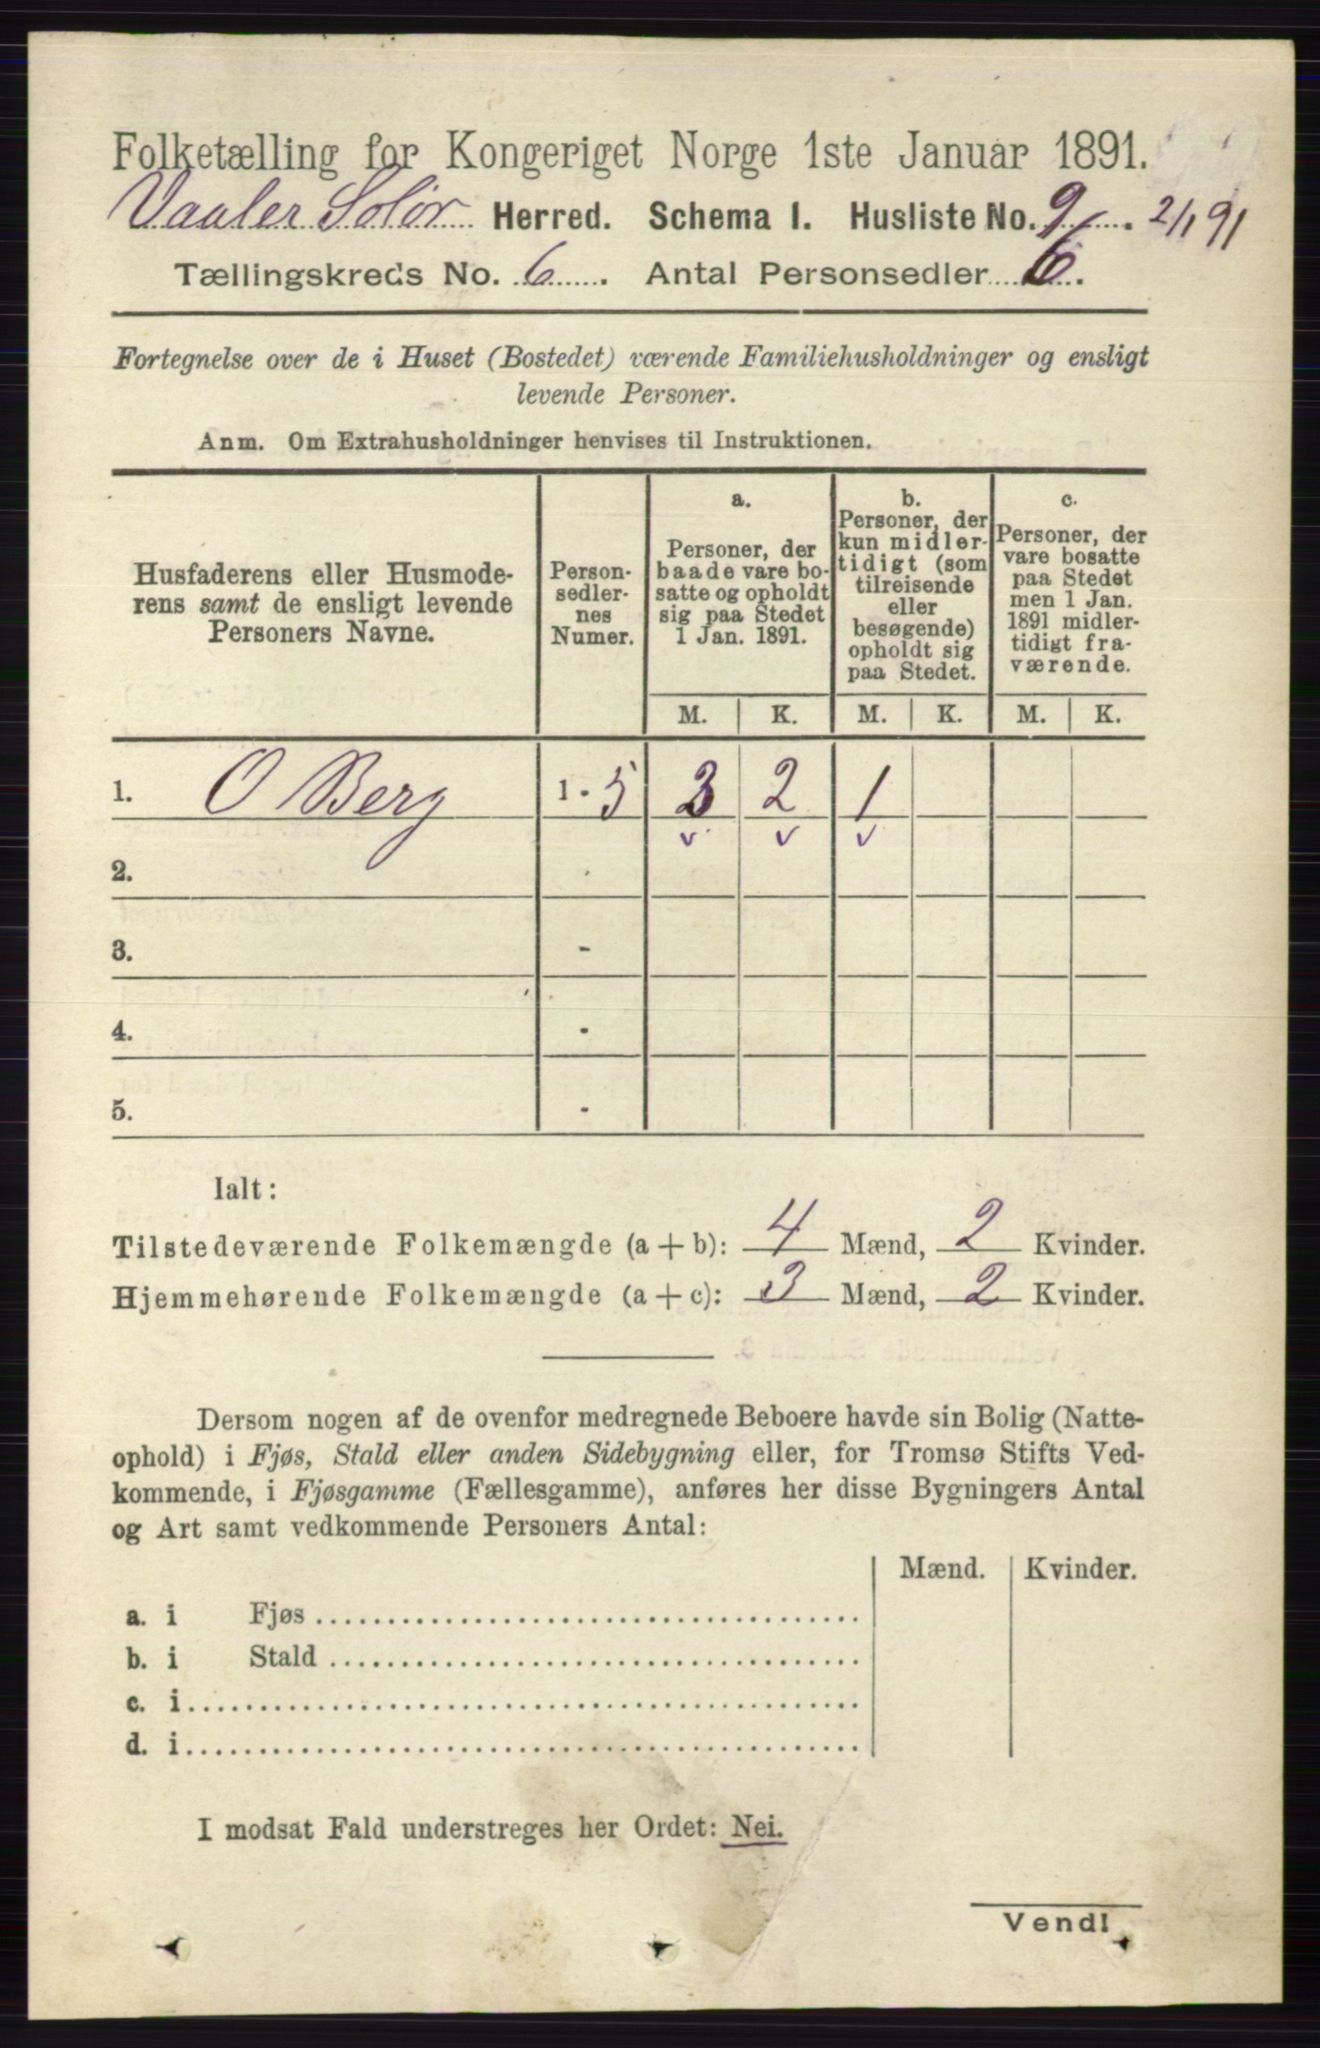 Folketælling for Kongeriget Norge 1ste Januar 1891.
Vaaler Solør Herred. Schema I. Husliste No. 9. 2/1 91
Tællingskreds No. 6. Antal Personsedler 6.
Fortegnelse over de i Huset (Bostedet) værende Familiehusholdninger og ensligt
levende Personer.
Anm. Om Extrahusholdninger henvises til Instruktionen.
Husfaderens eller Husmode-
rens samt de ensligt levende
Personers Navne.
Person-
sedler-
nes
Numer.
a.
Personer, der
baade vare bo-
satte og opholdt
sig paa Stedet
1 Jan. 1891.
b.
Personer, der
kun midler-
tidigt (som
tilreisende
eller
besøgende)
opholdt sig
paa Stedet.
c.
Personer, der
vare bosatte
paa Stedet
men 1 Jan.
1891 midler-
tidigt fra-
værende.
M. K. M. K. M. K.
1. O Berg 1 - 5 3 2 1
v v v
2.
3. -
4. -
5. -
Ialt:
Tilstedeværende Folkemængde (a + b): 4 Mænd, 2 Kvinder.
Hjemmehørende Folkemængde (a + c): 3 Mænd, 2 Kvinder.
Dersom nogen af de ovenfor medregnede Beboere havde sin Bolig (Natte-
ophold) i Fjøs, Stald eller anden Sidebygning eller, for Tromsø Stifts Ved-
kommende, i Fjøsgamme (Fællesgamme), anføres her disse Bygningers Antal
og Art samt vedkommende Personers Antal:
Mænd. Kvinder.
a. i Fjøs
b. i Stald
c. i
d. i
I modsat Fald understreges her Ordet: Nei.
Vend!